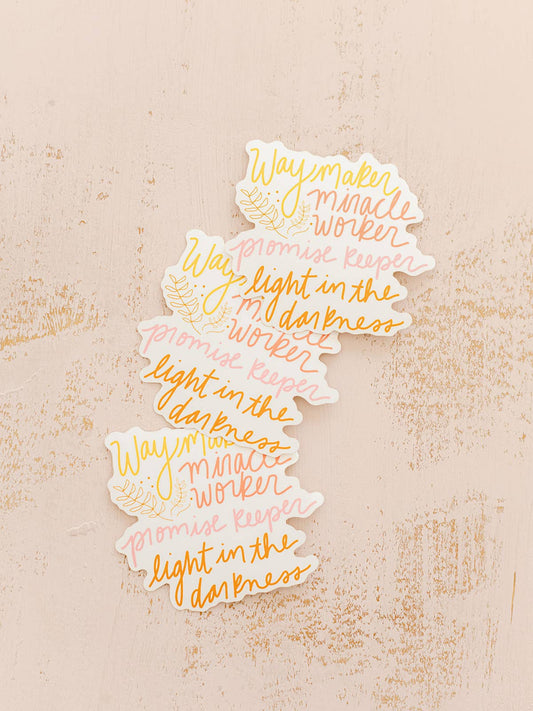 Way maker
miracle
worker
promise keeper
light in the
darkness
Way
miracle
worker
promise keeper
light in the
darkness
Way maker
miracle
worker
promise keeper
light in the
darkness